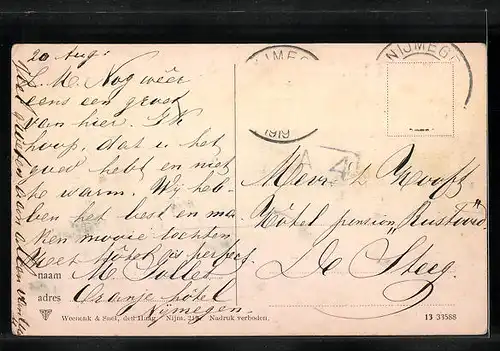 20 Aug:
L. M. Nog wéér
eens een groet
van hier. Ik
hoop, dat u het
goed hebt en niet
te warm. Wij heb-
ben het best en ma-
ken mooie tochten.
Het hôtel is perfect.
naam M.
adres Oranje hôtel
Nijmegen.
Weenenk & Snel, den Haag. Nijm. Nadruk verboden.
NIJMEGEN
1919
NIJMEGE
A
4
Hôtel pension „Rustoord"
De Steeg.
13 33588